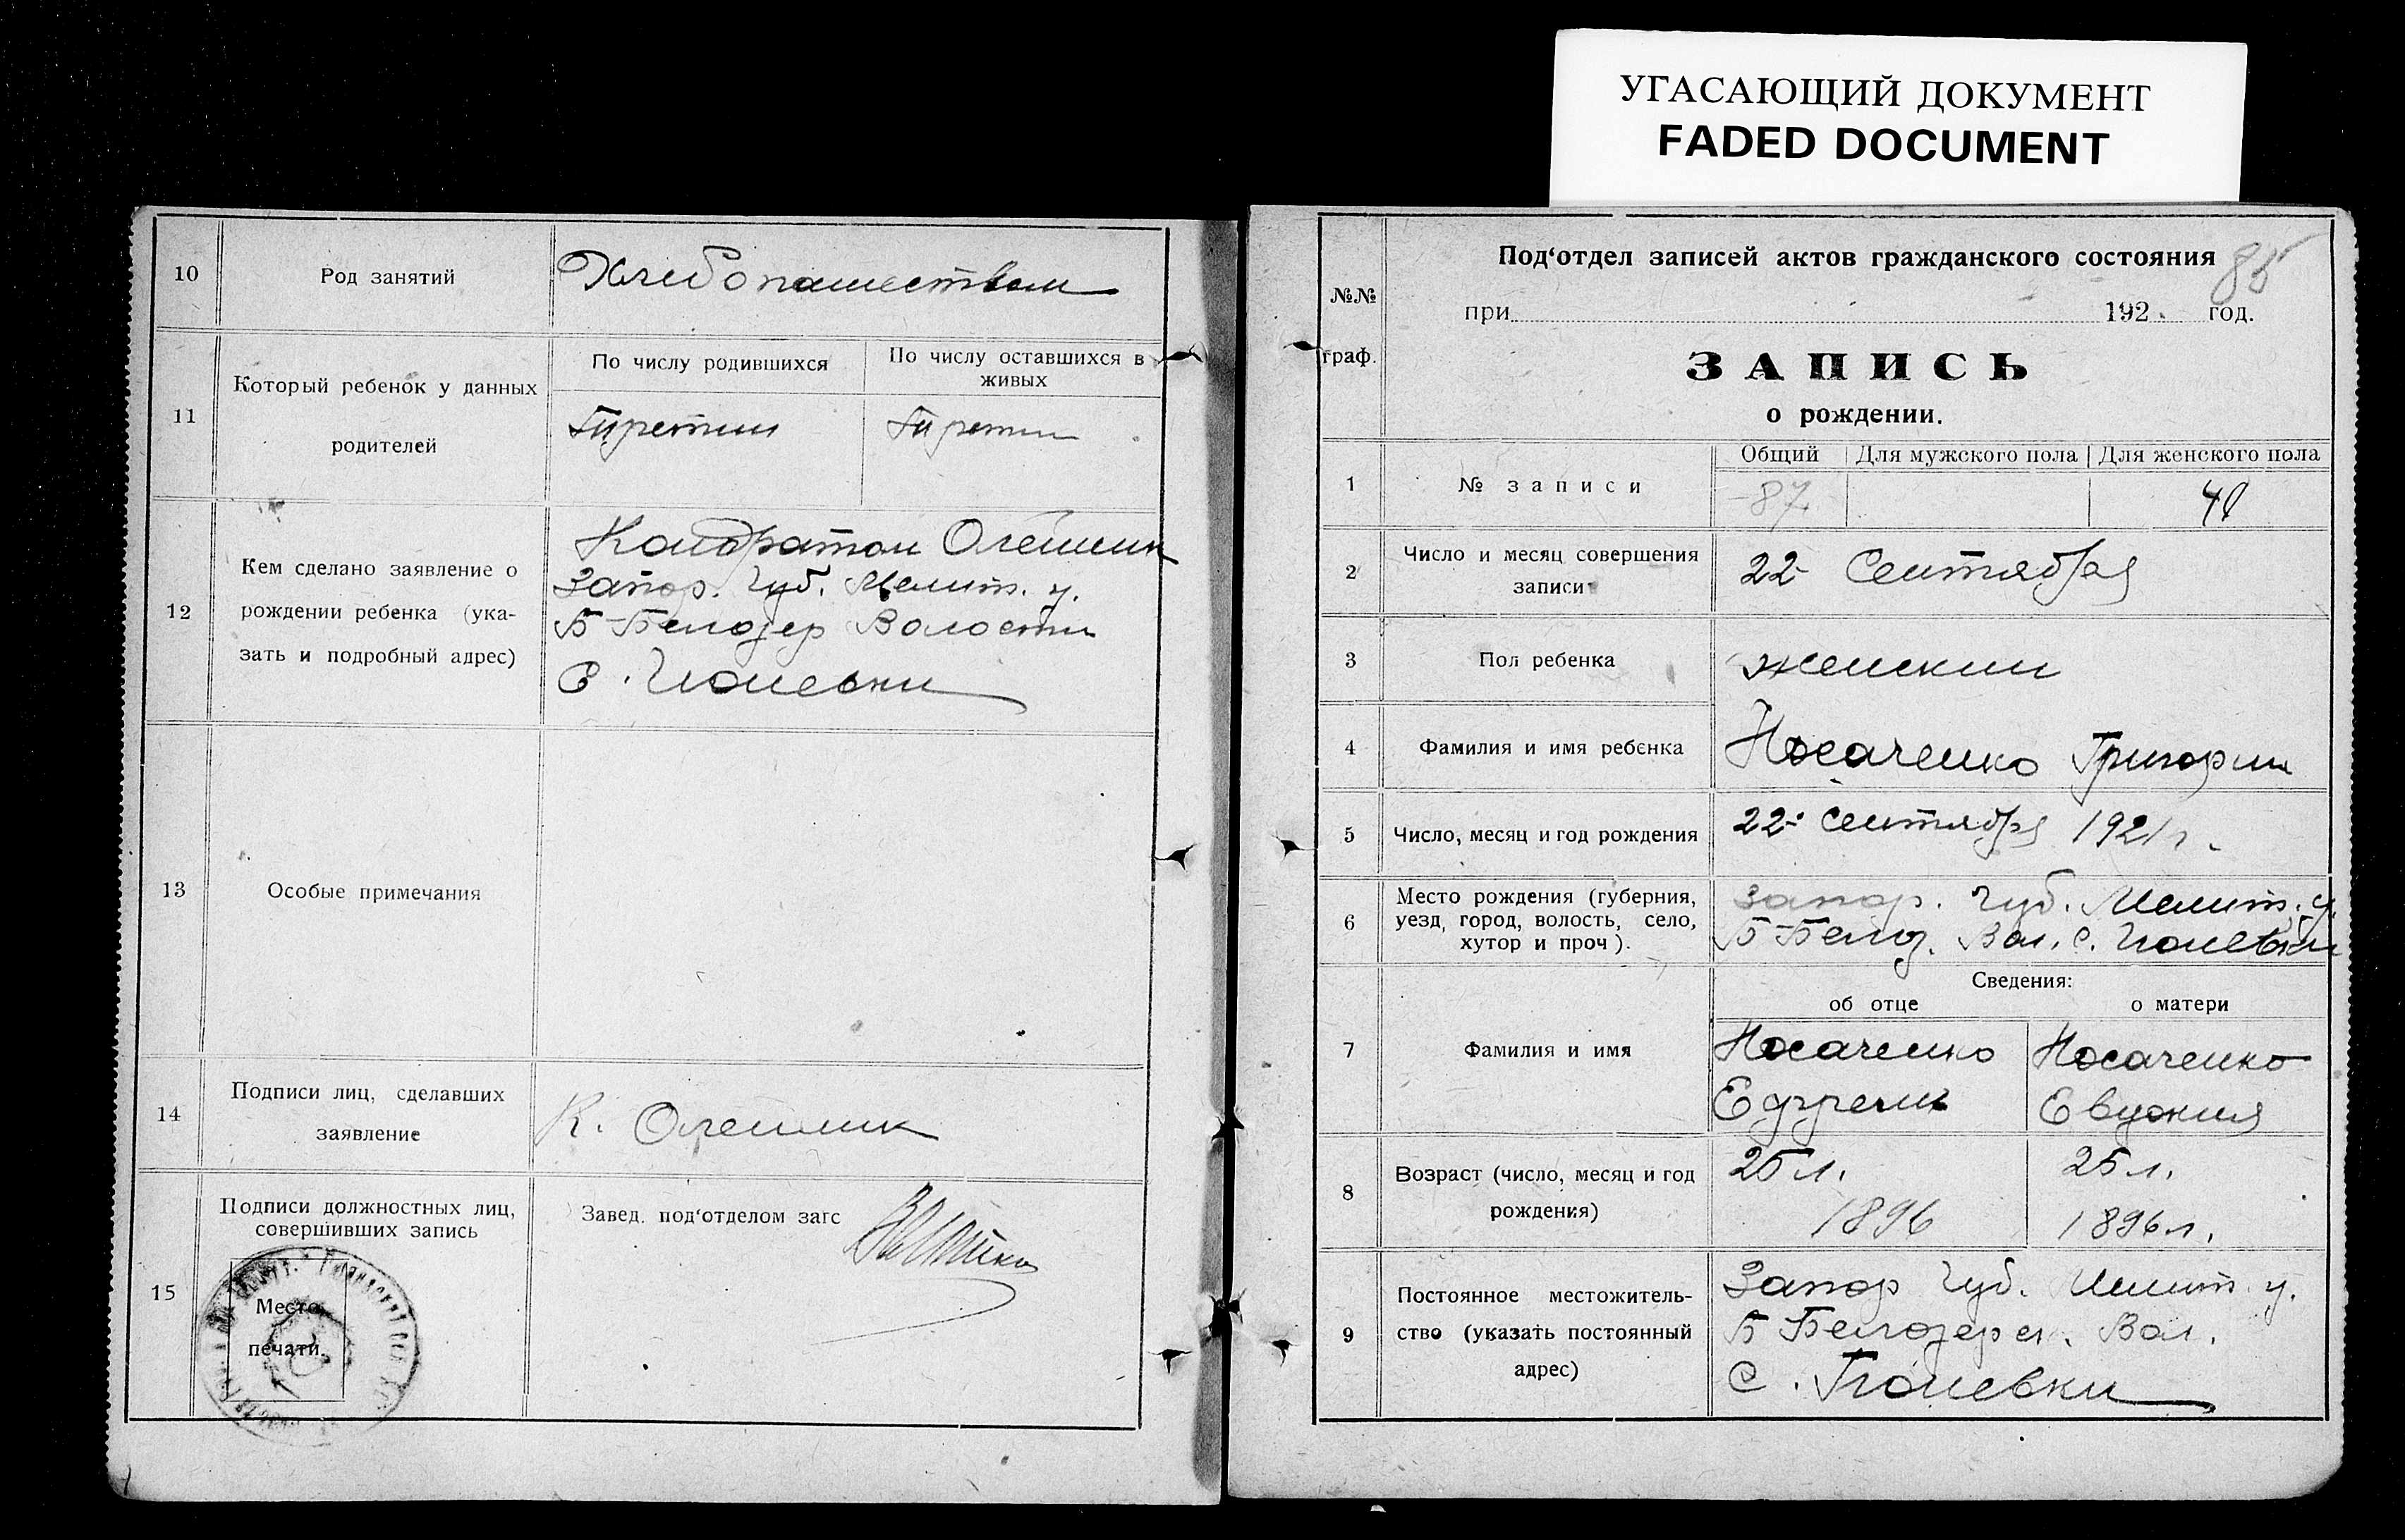 УГАСАЮЩИЙ ДОКУМЕНТ
FADED DOCUMENT
10
Род занятий
Хлебопашеством
11
Который ребенок у данных
родителей
По числу родившихся
По числу оставшихся в
живых
Третий
Третий
12
Кем сделано заявление о
рождении ребенка (ука-
зать и подробный адрес)
Кондратом Олейник
Запор. Губ. Мелит. у.
Б-Белозер Волости
С.
13
Особые примечания
14
Подписи лиц, сделавших
заявление
К. Олейник
15
Подписи должностных лиц,
совершивших запись
Место
печати.
Завед. под‘отделом загс
№№
граф.
Под‘отдел записей актов гражданского состояния
85
при 192 год.
ЗАПИСЬ
о рождении.
1
№ записи
Общий
Для мужского пола
Для женского пола
87
2
Число и месяц совершения
записи
22 Сентября
3
Пол ребенка
женский
4
Фамилия и имя ребенка
Носаченко Григорий
5
Число, месяц и год рождения
22 Сентября 1921 г.
6
Место рождения (губерния,
уезд, город, волость, село,
хутор и проч).
Запор. Губ. Мелит. у.
Б-Белоз. Вол. С.
7
Фамилия и имя
Сведения:
об отце
о матери
Носаченко
Ефрем
Носаченко
Евдокия
8
Возраст (число, месяц и год
рождения)
25 л.
1896
25 л.
1896 г.
9
Постоянное местожитель-
ство (указать постоянный
адрес)
Запор Губ. Мелит. у.
Б Белозерск. Вол.
С.